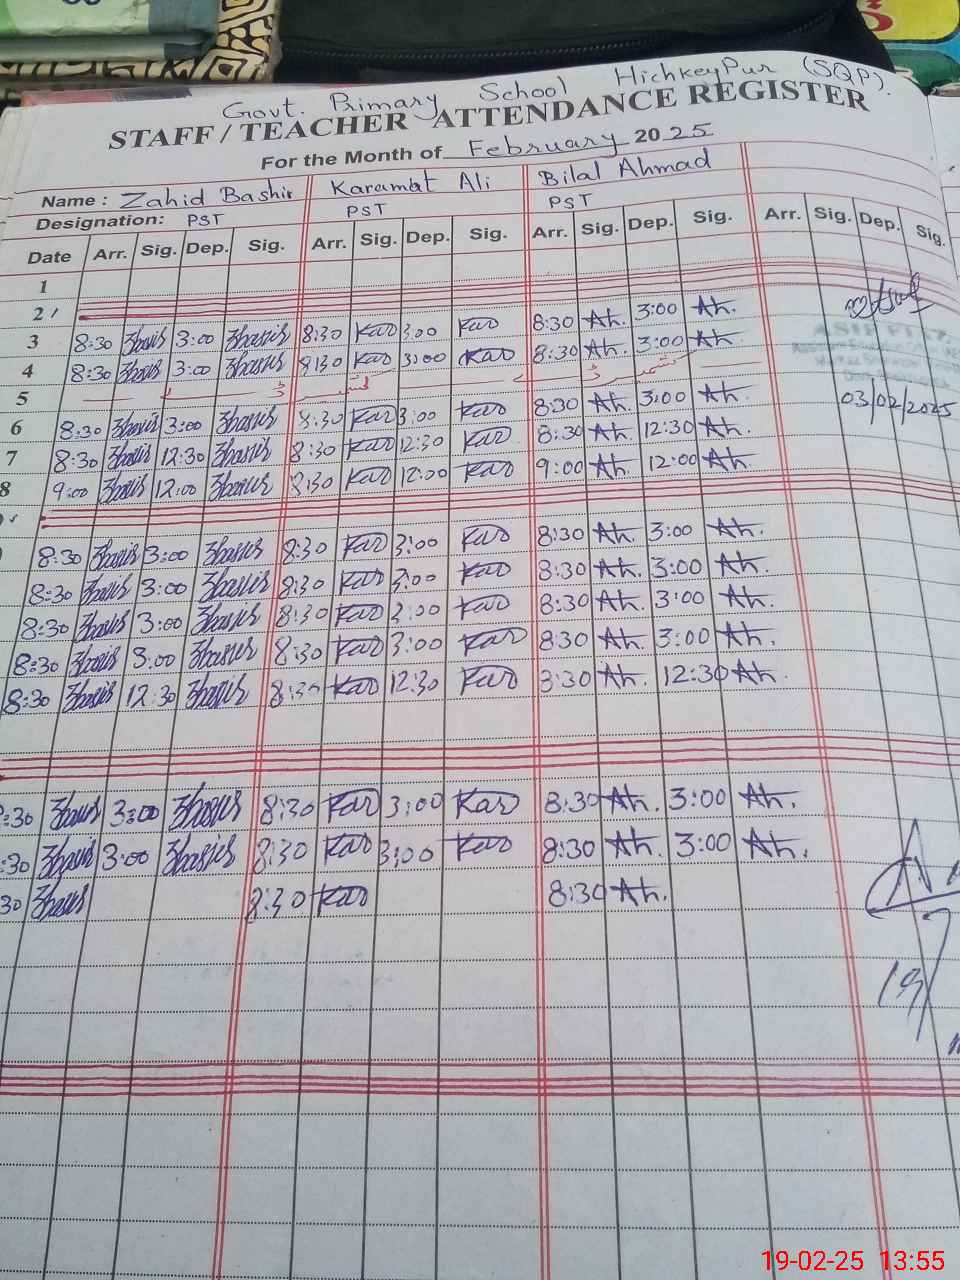 Govt. Primary School HichkeyPur (SQP).
STAFF / TEACHER ATTENDANCE REGISTER
For the Month of February 2025
Name : Zahid Bashir Karamat Ali Bilal Ahmad
Designation: PST PST PST
Date Arr. Sig. Dep. Sig. Arr. Sig. Dep. Sig. Arr. Sig. Dep. Sig. Arr. Sig. Dep. Sig.
1
2
3 8:30 Zbasir 3:00 Zbasir 8:30 Kar 3:00 Kar 8:30 Ah. 3:00 Ah.
4 8:30 Zbasir 3:00 Zbasir 8:30 Kar 3:00 Kar 8:30 Ah. 3:00 Ah.
5 کشمیر ڈے کشمیر
03/02/2025
6 8:30 Zbasir 3:00 Zbasir 8:30 Kar 3:00 Kar 8:30 Ah. 3:00 Ah.
7 8:30 Zbasir 12:30 Zbasir 8:30 Kar 12:30 Kar 8:30 Ah. 12:30 Ah.
8 9:00 Zbasir 12:00 Zbasir 8:30 Kar 12:00 Kar 9:00 Ah. 12:00 Ah.
8:30 Zbasir 3:00 Zbasir 8:30 Kar 3:00 Kar 8:30 Ah. 3:00 Ah.
8:30 Zbasir 3:00 Zbasir 8:30 Kar 3:00 Kar 8:30 Ah. 3:00 Ah.
8:30 Zbasir 3:00 Zbasir 8:30 Kar 3:00 Kar 8:30 Ah. 3:00 Ah.
8:30 Zbasir 3:00 Zbasir 8:30 Kar 3:00 Kar 8:30 Ah. 3:00 Ah.
8:30 Zbasir 12:30 Zbasir 8:30 Kar 12:30 Kar 8:30 Ah. 12:30 Ah.
:30 Zbasir 3:00 Zbasir 8:30 Kar 3:00 Kar 8:30 Ah. 3:00 Ah.
:30 Zbasir 3:00 Zbasir 8:30 Kar 3:00 Kar 8:30 Ah. 3:00 Ah.
30 Zbasir 8:30 Kar 8:30 Ah.
19-02-25 13:55